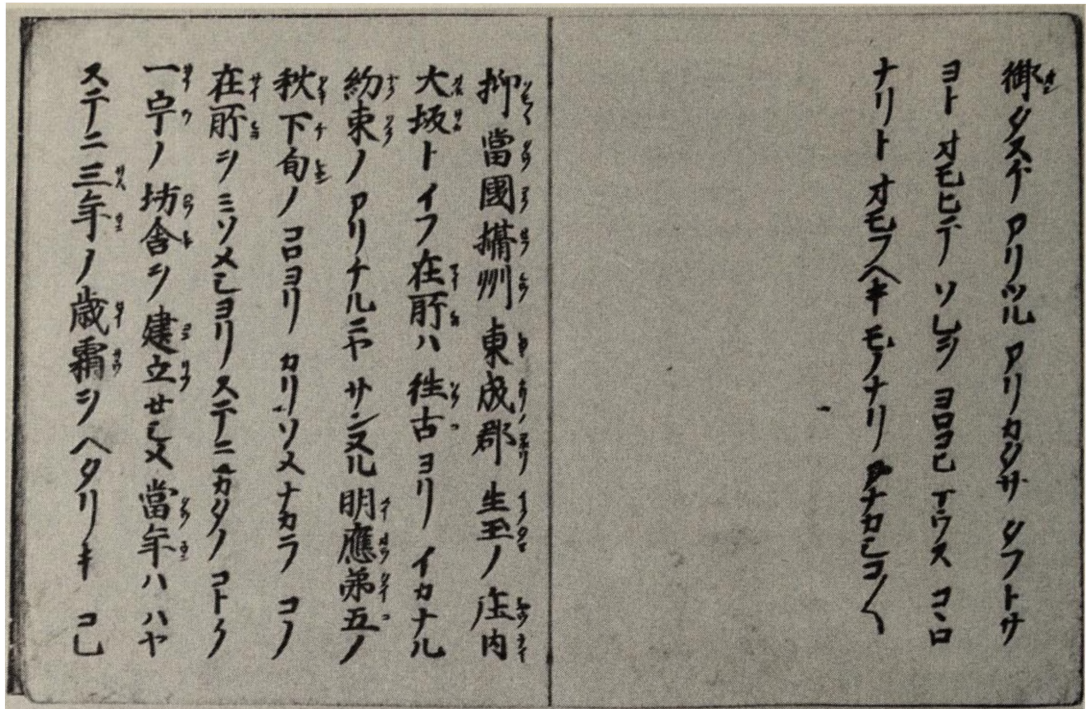 御タスケ アリツル アリカタサ タフトサ
ヨト オモヒテ ソレヲ ヨロコヒ マウス コヽロ
ナリト オモフヘキ モノナリ アナカシコ〱
抑 當國攝州 東成郡 生玉ノ庄内
大坂トイフ 在所ハ 徃古ヨリ イカナル
約束ノ アリケルニヤ サンヌル 明應第五ノ
秋下旬ノ コロヨリ カリソメナカラ コノ
在所ヲ ミソメシヨリ ステニ カタノ コトク
一宇ノ 坊舎ヲ 建立セシメ 當年ハ ハヤ
ステニ 三年ノ 歳霜ヲ ヘタリキ コレ